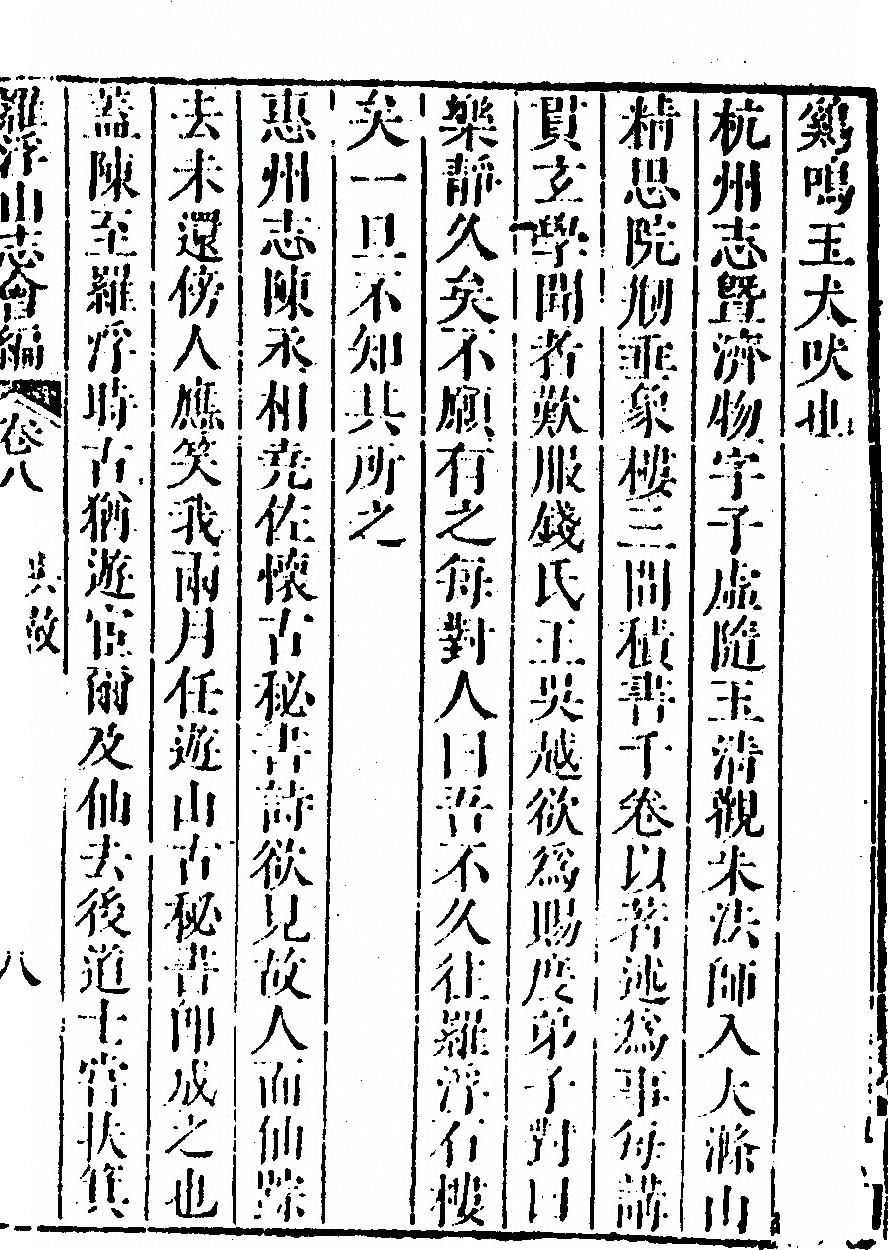 鷄鳴玉犬吠也
杭州志曁濟物字子虛隨玉清觀朱法師入大滌山
精思院刱垂象樓三間積書千卷以著述爲事每講
貫玄學聞者歎服錢氏王吳越欲爲賜度弟子對曰
樂靜久矣不願有之每對人曰吾不久往羅浮石樓
矣一旦不知其所之
惠州志陳丞相堯佐懷古秘書詩欲見故人而仙蹤
去未還傍人應笑我兩月任遊山古秘書卽成之也
蓋陳至羅浮時古猶遊宦爾及仙去後道士嘗扶箕
羅浮山志會編 卷八 吳故 八